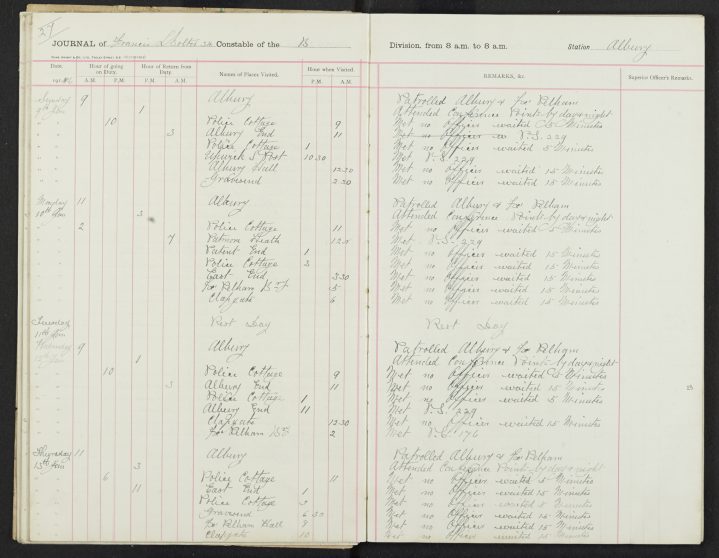 29
JOURNAL of Francis Constable of the 18 Division, from 8 a.m. to 8 a.m. Station Albury
Date. Hour of going on Duty. Hour of Return from Duty. Names of Places Visited. Hour when Visited. REMARKS, &c. Superior Officer's Remarks.
191 A.M. P.M. A.M. P.M. P.M. A.M.
Sunday 9 Albury Patrolled Albury & Fx Pelham
9th Jan 1 Attended Conference Points by day & night
10 Police Cottage 9 Met no Officer waited 5 Minutes
3 Albury End 11 Met no Officer
Police Cottage 1 Met no Officer waited 5 Minutes
Upwick S Post 10 30 Met P.S. 229
Albury Hall 12.30 Met no Officer waited 15 Minutes
Gravesend 2.30 Met no Officer waited 15 Minutes
Monday 11 Albury Patrolled Albury & Fx Pelham
10th Jan 3 Attended Conference Points by day & night
2 Police Cottage 11 Met no Officer waited 5 Minutes
7 Patmore Heath Met P.S. 229
End 1 Met no Officer waited 15 Minutes
Police Cottage 3 Met no Officer waited 15 Minutes
East End 3.30 Met no Officer waited 15 Minutes
Fx Pelham 5 Met no Officer waited 15 Minutes
Clapgate 6 Met no Officer waited 15 Minutes
Tuesday Rest Day Rest Day
11th Jan
Wednesday 9 Albury Patrolled Albury & Fx Pelham
1 Attended Conference Points by day & night
10 Police Cottage 9 Met no Officer waited 5 Minutes
3 Albury End 11 Met no Officer waited 15 Minutes
Police Cottage 1 Met no Officer waited 5 Minutes
Albury End 11 Met P.S. 229
Clapgate 12.30 Met no Officer waited 15 Minutes
Fx Pelham 2 Met P.C. 176
Thursday 11 Albury Patrolled Albury & Fx Pelham
13th Jan 3 Attended Conference Points by day & night
6 Police Cottage 11 Met no Officer waited 5 Minutes
11 East End 1 Met no Officer waited 15 Minutes
Police Cottage Met no Officer waited 5 Minutes
Gravesend 6 30 Met no Officer waited 15 Minutes
Fx Pelham Hall Met no Officer waited 15 Minutes
Clapgate 10 Met no Officer waited 15 Minutes